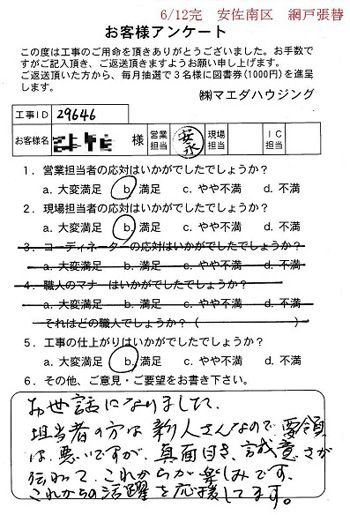 6/12完 安佐南区 網戸張替
お客様アンケート
この度は工事のご用命を頂きありがとうございました。お手数で
すがご記入頂き、ご返送頂きますようお願い申し上げます。
ご返送頂いた方から、毎月抽選で3名様に図書券(1000円)を進呈
します。
㈱マエダハウジング
工事ID 29646
お客様名 様 営業担当 安永 現場担当 IC担当
1．営業担当者の応対はいかがでしたでしょうか？
a. 大変満足 b. 満足 c. やや不満 d. 不満
2．現場担当者の応対はいかがでしたでしょうか？
a. 大変満足 b. 満足 c. やや不満 d. 不満
3．コーディネーターの応対はいかがでしたでしょうか？
a. 大変満足 b. 満足 c. やや不満 d. 不満
4．職人のマナーはいかがでしたでしょうか？
a. 大変満足 b. 満足 c. やや不満 d. 不満
それはどの職人でしょうか？（ ）
5．工事の仕上がりはいかがでしたでしょうか？
a. 大変満足 b. 満足 c. やや不満 d. 不満
6．その他、ご意見・ご要望をお書き下さい。
お世話になりました。
担当者の方は新人さんなので要領
は悪いですが、真面目さ、誠意さが
伝わって、これからが楽しみです。
これからの活躍を応援してます。